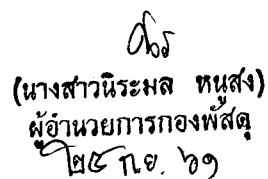 (นางสาวนิระมล หนูสง)
ผู้อำนวยการกองพัสดุ
๒๕ ก.ย. ๖๑